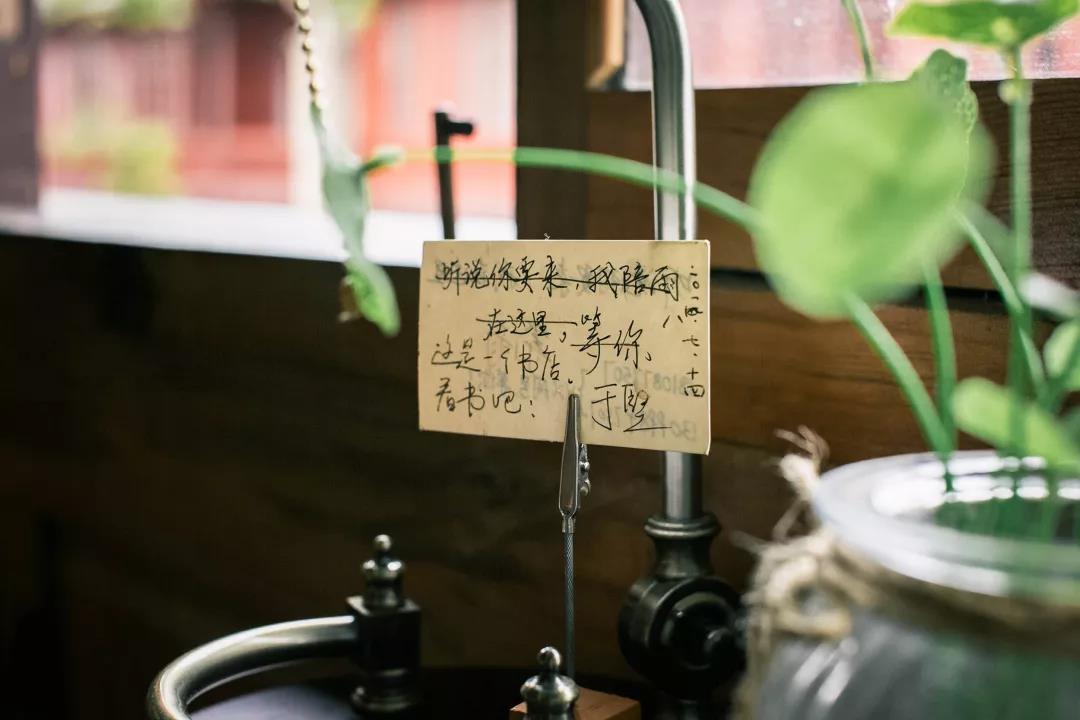 听说你要来，我陪雨
在这里，等你、
这是一个书店。
看书吧！
于坚
八・七・十四